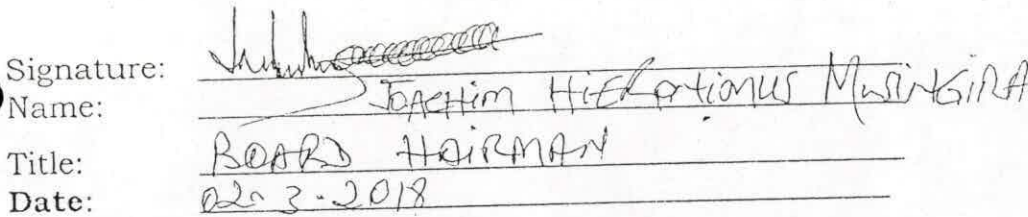 Signature:
Name: JOACHIM HIERONIMUS MUSINGIRA
Title: BOARD HAIRMAN
Date: 02-3-2018